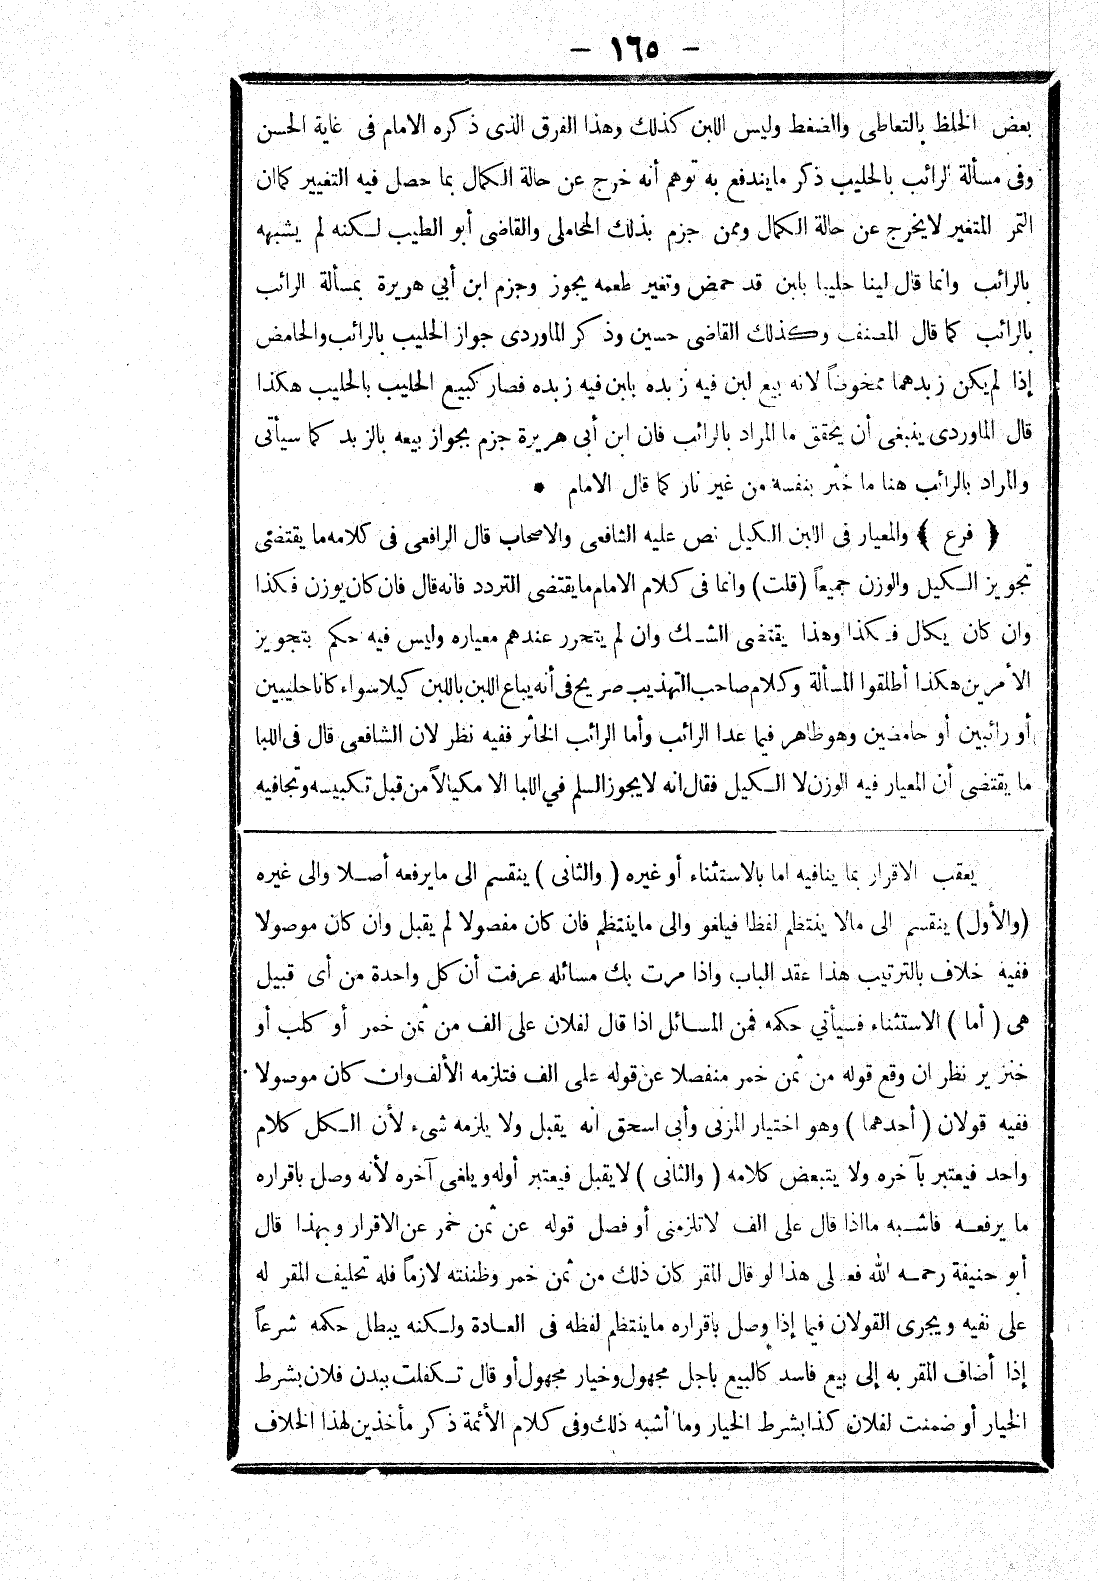 – ١٦٥ –
بعض الخلظ بالتعاطى والضغط وليس اللبن كذلك وهذا الفرق الذى ذكره الامام فى غاية الحسن
وفى مسألة الرائب بالحليب ذكر مايندفع به توهم أنه خرج عن حالة الكمال بما حصل فيه التغيير كماان
التمر المتغير لايخرج عن حالة الكمال وممن جزم بذلك المحاملى والقاضى أبو الطيب لكنه لم يشبهه
بالرائب وانما قال لبنا حليبا بلبن قد حمض وتغير طعمه يجوز وجزم ابن أبي هريرة بمسألة الرائب
بالرائب كما قال المصنف وكذلك القاضى حسين وذكر الماوردى جواز الحليب بالرائب والحامض
إذا لم يكن زبدهما ممخوضاً لانه بيع لبن فيه زبده بلبن فيه زبده فصار كبيع الحليب بالحليب هكذا
قال الماوردى ينبغى أن يحقق ما المراد بالرائب فان ابن أبى هريرة جزم بجواز بيعه بالزبد كما سيأتى
والمراد بالرائب هنا ما خثر بنفسه من غير نار كما قال الامام *
﴿ فرع ﴾ والمعيار فى اللبن الكيل نص عليه الشافعى والاصحاب قال الرافعى فى كلامه ما يقتضى
تجويز الكيل والوزن جميعاً (قلت) وانما فى كلام الامام مايقتضى التردد فانه قال فان كان يوزن فكذا
وان كان يكال فكذا وهذا يقتضى الشك وان لم يتحرر عندهم معياره وليس فيه حكم بتجويز
الأمرين هكذا أطلقوا المسألة وكلام صاحب التهذيب صريح فى أنه يباع اللبن باللبن كيلا سواء كانا حليبين
أو رائبين أو حامضين وهو ظاهر فيما عدا الرائب وأما الرائب الخاثر ففيه نظر لان الشافعى قال فى اللبا
ما يقتضى أن المعيار فيه الوزن لا الكيل فقال انه لا يجوز السلم في اللبا الا مكيالاً من قبل تكبيسه وتجافيه
يعقب الاقرار بما ينافيه اما بالاستثناء أو غيره ( والثانى ) ينقسم الى مايرفعه أصلا والى غيره
(والأول) ينقسم الى مالا ينتظم لفظا فيلغو والى ماينتظم فان كان مفصولا لم يقبل وان كان موصولا
ففيه خلاف بالترتيب هذا عقد الباب واذا مرت بك مسائله عرفت أن كل واحدة من أى قبيل
هى ( أما ) الاستثناء فسيأتي حكمه فمن المسائل اذا قال لفلان على الف من ثمن خمر أو كلب أو
خنزير نظر ان وقع قوله من ثمن خمر منفصلا عن قوله على الف فتلزمه الألف وان كان موصولا
ففيه قولان ( أحدهما ) وهو اختيار المزنى وأبى اسحق انه يقبل ولا يلزمه شىء لأن الكل كلام
واحد فيعتبر بآخره ولا يتبعض كلامه ( والثانى ) لايقبل فيعتبر أوله ويلغى آخره لأنه وصل باقراره
ما يرفعه فاشبه مااذا قال على الف لاتلزمنى أو فصل قوله عن ثمن خمر عن الاقرار وبهذا قال
أبو حنيفة رحمه الله فعلى هذا لو قال المقر كان ذلك من ثمن خمر وظننته لازماً فله تحليف المقر له
على نفيه ويجرى القولان فيما إذا وصل باقراره ماينتظم لفظه فى العادة ولكنه يبطل حكمه شرعاً
إذا أضاف المقر به إلى بيع فاسد كالبيع باجل مجهول وخيار مجهول أو قال تكفلت ببدن فلان بشرط
الخيار أو ضمنت لفلان كذا بشرط الخيار وما أشبه ذلك وفى كلام الأئمة ذكر مأخذين لهذا الخلاف